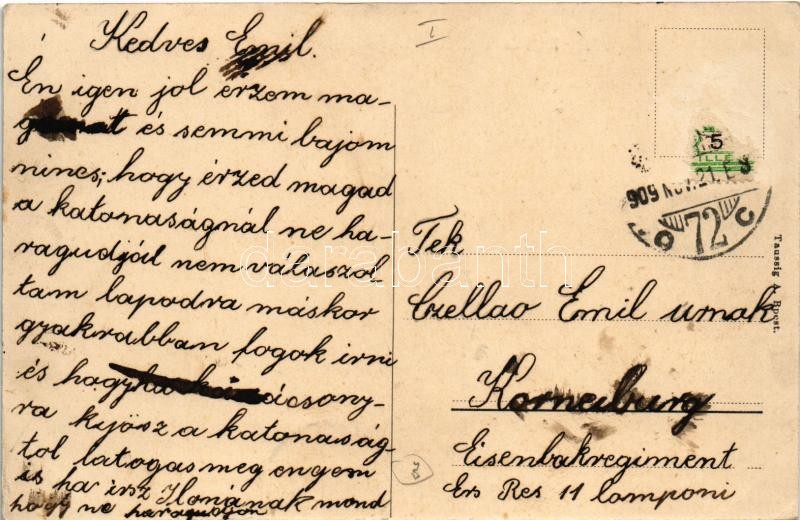 Kedves Emil.
En igen jol erzem ma-
és semmi bajom
nincs; hogy érzed magad
a katonaságnál ne ha-
ragudjál nem válaszol
tam lapodra máskor
gyakrabban fogok irni
és hogyha karácsony-
ra kijösz a katonaság-
tol latogas meg engem
is ha irsz Ilonának mond
hogy ne haragudjon
I
5
909 NOV. 21.
72 C
Tek
Czellao Emil urnak
Korneuburg
Eisenbakregiment
Ers Res 11 componi
Taussig A. Bpest.
darabanth